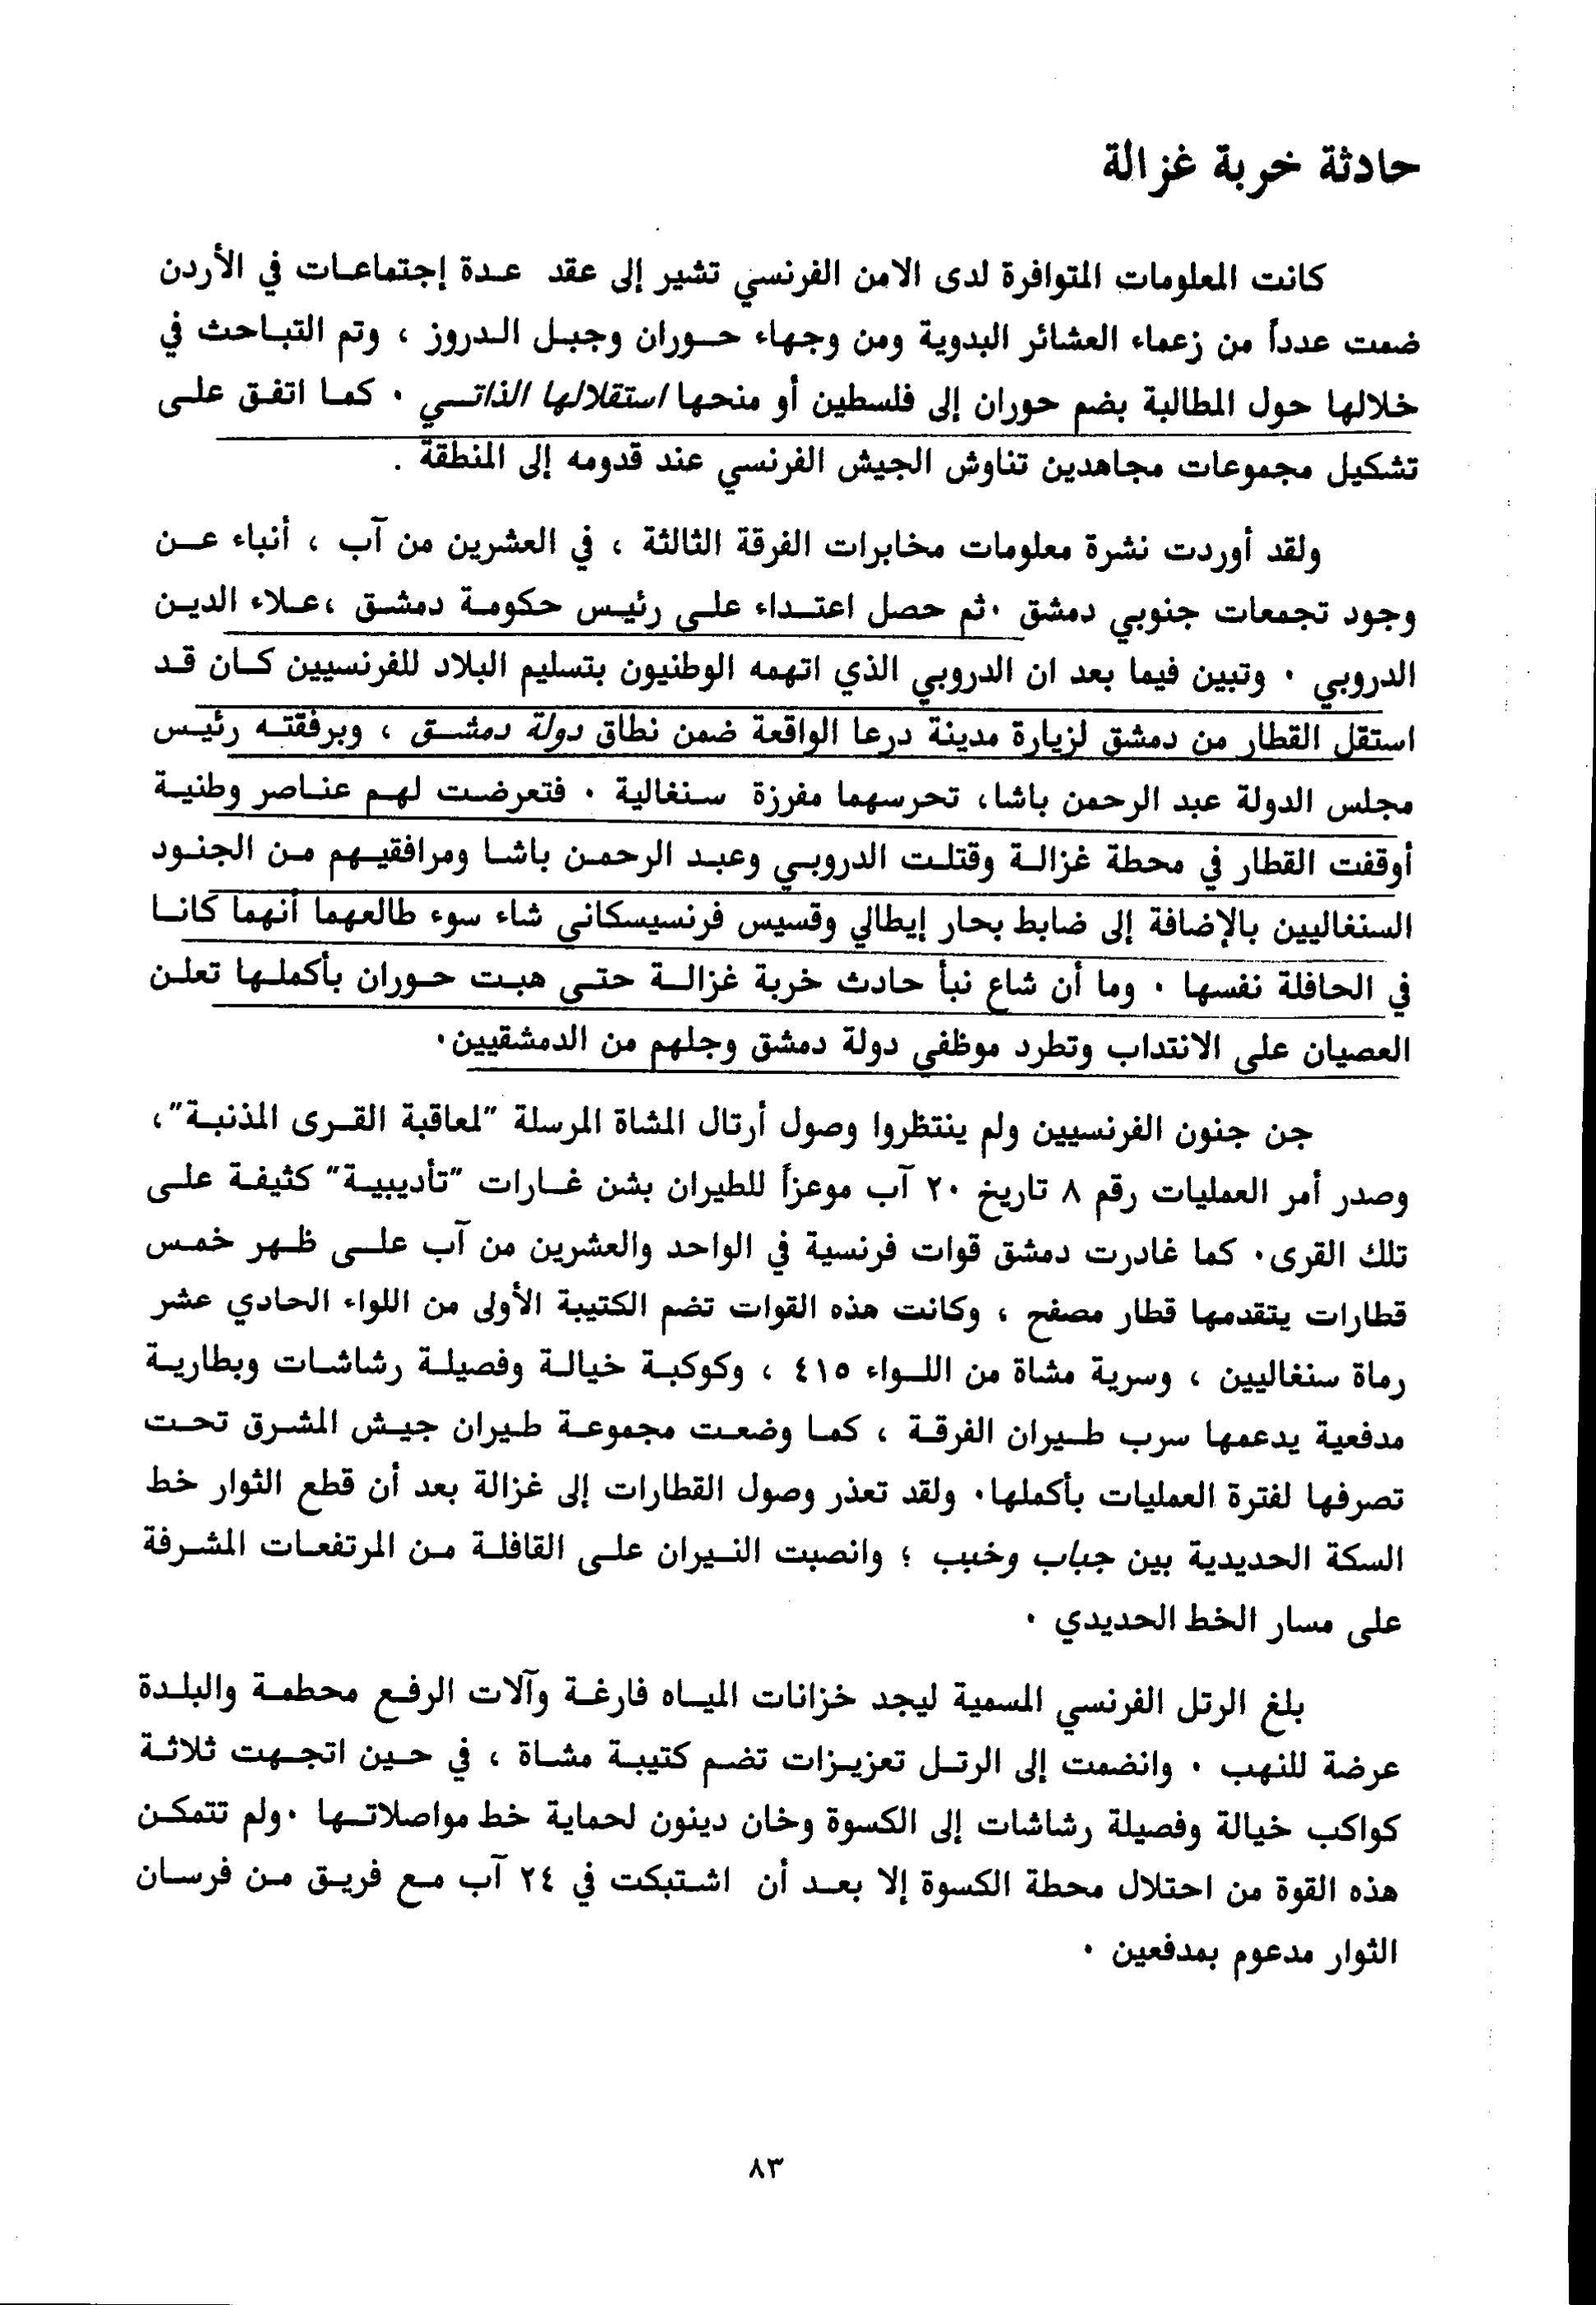 حادثة خربة غزالة
كانت المعلومات المتوافرة لدى الامن الفرنسي تشير إلى عقد عدة إجتماعات في الأردن
ضمت عدداً من زعماء العشائر البدوية ومن وجهاء حوران وجبل الدروز ، وتم التباحث في
خلالها حول المطالبة بضم حوران إلى فلسطين أو منحها استقلالها الذاتي . كما اتفق على
تشكيل مجموعات مجاهدين تناوش الجيش الفرنسي عند قدومه إلى المنطقة .
ولقد أوردت نشرة معلومات مخابرات الفرقة الثالثة ، في العشرين من آب ، أنباء عن
وجود تجمعات جنوبي دمشق .ثم حصل اعتداء على رئيس حكومة دمشق ،علاء الدين
الدروبي . وتبين فيما بعد ان الدروبي الذي اتهمه الوطنيون بتسليم البلاد للفرنسيين كان قد
استقل القطار من دمشق لزيارة مدينة درعا الواقعة ضمن نطاق دولة دمشق ، وبرفقته رئيس
مجلس الدولة عبد الرحمن باشا، تحرسهما مفرزة سنغالية . فتعرضت لهم عناصر وطنية
أوقفت القطار في محطة غزالة وقتلت الدروبي وعبد الرحمن باشا ومرافقيهم من الجنود
السنغاليين بالإضافة إلى ضابط بحار إيطالي وقسيس فرنسيسكاني شاء سوء طالعهما أنهما كانا
في الحافلة نفسها . وما أن شاع نبأ حادث خربة غزالة حتى هبت حوران بأكملها تعلن
العصيان على الانتداب وتطرد موظفي دولة دمشق وجلهم من الدمشقيين.
جن جنون الفرنسيين ولم ينتظروا وصول أرتال المشاة المرسلة "لمعاقبة القرى المذنبة"،
وصدر أمر العمليات رقم ٨ تاريخ ٢٠ آب موعزاً للطيران بشن غارات "تأديبية" كثيفة على
تلك القرى. كما غادرت دمشق قوات فرنسية في الواحد والعشرين من آب على ظهر خمس
قطارات يتقدمها قطار مصفح ، وكانت هذه القوات تضم الكتيبة الأولى من اللواء الحادي عشر
رماة سنغاليين ، وسرية مشاة من اللواء ٤١٥ ، وكوكبة خيالة وفصيلة رشاشات وبطارية
مدفعية يدعمها سرب طيران الفرقة ، كما وضعت مجموعة طيران جيش المشرق تحت
تصرفها لفترة العمليات بأكملها. ولقد تعذر وصول القطارات إلى غزالة بعد أن قطع الثوار خط
السكة الحديدية بين جباب وخبب ؛ وانصبت النيران على القافلة من المرتفعات المشرفة
على مسار الخط الحديدي .
بلغ الرتل الفرنسي المسمية ليجد خزانات المياه فارغة وآلات الرفع محطمة والبلدة
عرضة للنهب . وانضمت إلى الرتل تعزيزات تضم كتيبة مشاة ، في حين اتجهت ثلاثة
كواكب خيالة وفصيلة رشاشات إلى الكسوة وخان دينون لحماية خط مواصلاتها .ولم تتمكن
هذه القوة من احتلال محطة الكسوة إلا بعد أن اشتبكت في ٢٤ آب مع فريق من فرسان
الثوار مدعوم بمدفعين .
٨٣